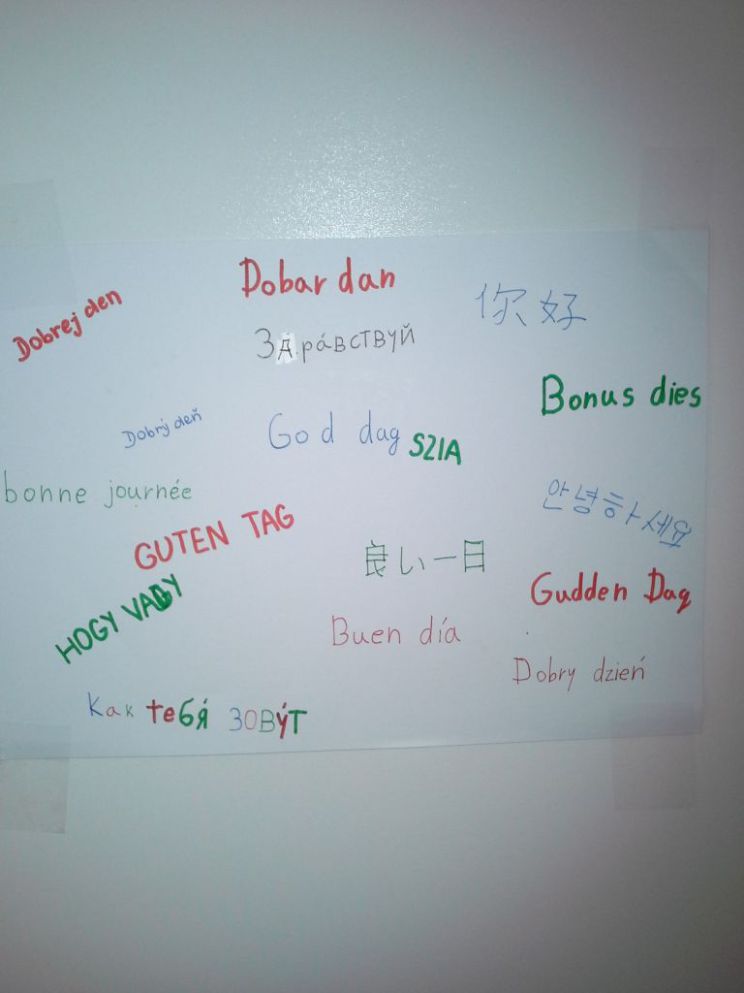 Dobar dan
Dobrej den
你好
Здрáвствуй
Bonus dies
Dobrý deň
God dag
SZIA
bonne journée
안녕하세요
GUTEN TAG
良い一日
HOGY VAGY
Gudden Dag
Buen día
Dobry dzień
Как тебя́ зову́т